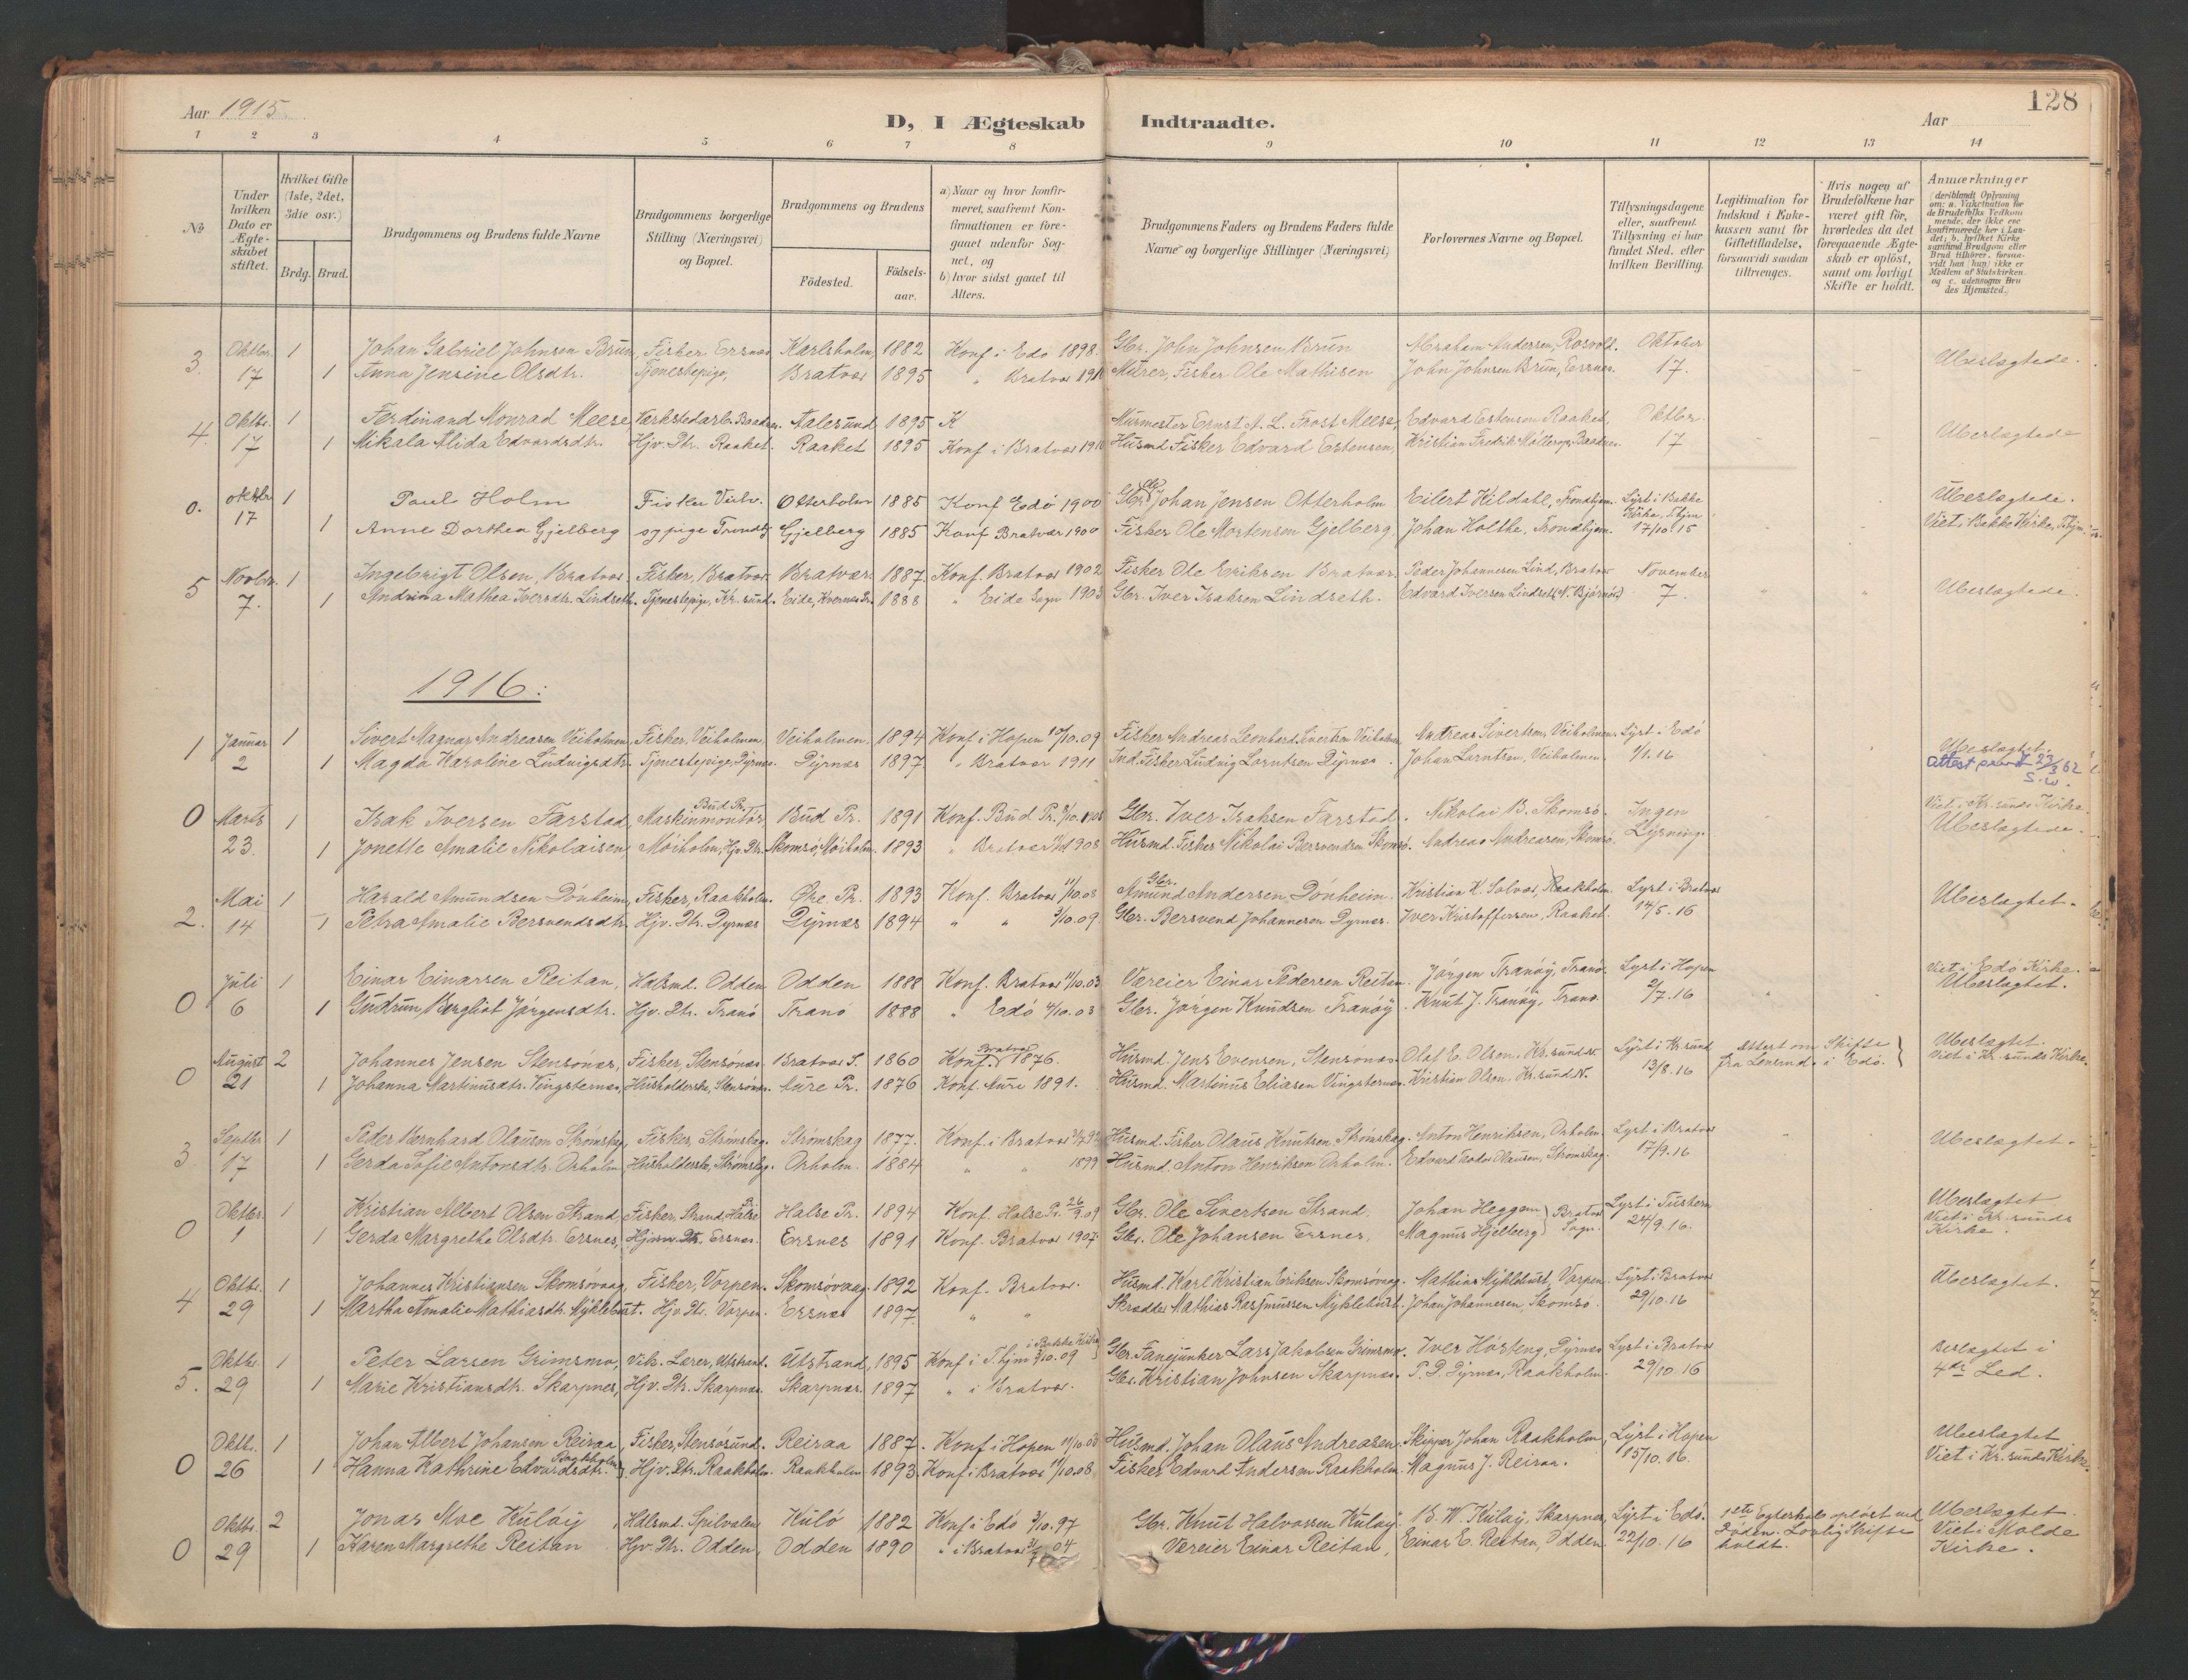 Aar 1915.
D, I Ægteskab Indtraadte.
Aar
128
1 2 3 4 5 6 7 8 9 10 11 12 13 14
No
Under hvilken Dato er Ægte-skabet stiftet.
Hvilket Gifte (1ste, 2det, 3die osv.)
Brdg. Brud.
Brudgommens og Brudens fulde Navne
Brudgommens borgerlige Stilling (Næringsvei) og Bopæl.
Brudgommens og Brudens
Födested. Födsels-aar.
a) Naar og hvor konfir-meret, saafremt Kon-firmationen er fore-gaaet udenfor Sog-net, og
b) hvor sidst gaaet til Alters.
Brudgommens Faders og Brudens Faders fulde Navne og borgerlige Stillinger (Næringsvei)
Forlovernes Navne og Bopæl.
Tillysningsdagene eller, saafremt Tillysning ei har fundet Sted. efter hvilken Bevilling.
Legitimation for Indskud i Enke-kassen samt for Giftetilladelse, forsaavidt saadan tiltrænges.
Hvis nogen af Brudefolkene har været gift för, hvorledes da det foregaaende Ægte-skab er oplöst, samt om lovligt Skifte er holdt.
Anmærkninger (deriblandt Oplysning om: a. Vakcination for de Brudefolks Vedkom mende, der ikke ere konfirmerede her i Lan-det; b. hvilket Kirke samfund Brudgom eller Brud tilhører, forsaa-vidt han (hun) ikke er Medlem af Statskirken. og c. udensogns Bru des Hjemsted.)
3. Oktbr. 1 Johan Gabriel Johnsen Brun, Fisker Ersnes Karlsholm, 1882 Konf i Edö 1898. Gbr. John Johnsen Brun Abraham Andersen, Rosvold. Oktober Ubeslægtede.
17 1 Anna Jensine Olsdtr. Tjenestepige, Bratvær 1895 " Bratvær 1910 Murer, Fisker Ole Mathisen John Johnsen Brun, Ersnes. 17.
4. Oktbr. 1 Ferdinand Monrad Meese, Værkstedarb. Aalesund 1895 K Murmester Ernst A. L. Frost Meese, Edvard Estensen Raaket, Oktbr. Ubeslægtede
17 1 Mikala Alida Edvardsdtr. Hjv. Dtr. Raaket. Raaket 1895 Konf i Bratvær 1910 Husmd Fisker Edvard Estensen, Kristian Fredrik Møllerop, 17
0. oktbr 1 Poul Holm Fisker Veih. Otterholm 1885 Konf Edö 1900 Gbr. Ole Johan Jensen Otterholm Eilert Kildatl, Trondhjem. Lyst i Bakke Kirke, Thjm Ubeslægtede.
17 1 Anne Dorthea Gjelberg og pige Trondhj Gjelberg 1885 Konf Bratvær 1900 Fisker Ole Mortensen Gjelberg Johan Holthe, Trondhjem. 17/10.15 Viet i Bakke Kirke, Thjm.
5 Novbr. 1 Ingebrigt Olsen, Bratvær. Fisker, Bratvær. Bratvær. 1887. Konf. Bratvær 1902 Fisker Ole Eriksen Bratvær. Peder Johannesen Lind, Bratvær November Ubeslægtede.
7. 1 Andrina Mathea Iversdtr. Lindseth. Tjenestepige, Kr.sund. Eide, Kvernes Pr. 1888 " Eide Sogn 1903 Gbr. Iver Isaksen Lindseth. Edvard Iversen Lindseth (N. Bjørnö) 7.
1916:
1 Januar 1 Sivert Magnar Andreasen Veiholmen, Fisker, Veiholmen, Veiholmen. 1894 Konf i Hopen 10/10.09 Fisker Andreas Leonhard Sivertsen Veiholmen Andreas Sivertsen, Veiholmen. Lyst i Edö Ubeslægtet.
2 1 Magda Karoline Ludvigsdtr. Tjenestepige, Dyrnes. Dyrnes 1897 " Bratvær 1911 Ind. Fisker Ludvig Larntsen Dyrnes. Johan Larntsen, Veiholmen. 1/1.16 Attest 23/3 62 S.W.
0 Marts 1 Isak Iversen Farstad, Maskinmontør Bud Pr. Bud Pr. 1891 Konf. Bud Pr. Gbr. Iver Isaksen Farstad. Nikolai B. Skomsö. Ingen Viet i Kr.sunds Kirke.
23. 1 Jonette Amalie Nikolaisen, Möiholm, Hjv. Dtr. Skomsö, Möiholm. 1893 " Bratvær 1908 Husmd. Fisker Nikolai Bersvendsen Skomsö. Andreas Andreasen, Skomsö. Lysning. Ubeslægtede.
2. Mai 1 Harald Amundsen Dönheim, Fisker, Raakholm. Öre Pr. 1893 Konf. Bratvær 11/10.08 Gbr. Amund Andersen, Dönheim. Kristian K. Solvær, Raakholm. Lyst i Bratvær Ubeslægtet.
14 1 Petra Amalie Bersvendsdtr. Hjv. Dtr. Dyrnes Dyrnes 1894 " " 3/10.09. Gbr. Bersvend Johannesen Dyrnes. Iver Kristoffersen, Raaket. 14/5.16
0 Juli 1 Einar Einarsen Reitan, Hdlsmd. Odden Odden 1888 Konf. Bratvær 11/10.03 Væreier Einar Pedersen Reitan. Jörgen Tranöy, Tranö. Lyst i Hopen Viet i Edö Kirke.
6 1 Gudrun Bergliot Jörgensdtr. Hjv. Dtr. Tranö Tranö 1888 " Edö 4/10.03 Gbr. Jörgen Knudsen Tranöy. Knut J. Tranöy, Tranö. 2/7.16 Ubeslægtet.
0 August 2 Johannes Jensen Stensönes, Fisker, Stensönes. Bratvær S. 1860 Konf. Bratvær 1876. Husmd. Jens Evensen, Stensönes. Olaf E. Olsen, Kr.sund N. Lyst i Kr.sund Attest om Skifte Ubeslægtet.
21 1 Johanna Martinusdtr. Vingsternes, Husholderske, Stensönes. Aure Pr. 1876 Konf. Aure 1891. Husmd. Martinus Eliasen Vingsternes. Kristian Olsen, Kr.sund N. 13/8.16 fra Lensmd. i Edö. Viet i Kr.sunds Kirke.
3 Septbr. 1 Peder Bernhard Olausen Strömskag, Fisker, Strömskag. Strömskag 1877. Konf. i Bratvær Husmd. Fisker Olaus Knutsen, Strömskag. Anton Henriksen, Orholm. Lyst i Bratvær Ubeslægtet.
17 1 Gerda Sofie Antonsdtr. Orholm, Husholderske, Strömskag. Orholm. 1884 " " 1899 Husmd. Anton Henriksen Orholm. Edvard Teodor Olausen, Strömskag. 17/9.16
0 Oktbr. 1 Kristian Albert Olsen Strand, Fisker, Strand, Halse Pr. Halse Pr. 1894 Konf. Halse Pr. 26/9.09 Gbr. Ole Sivertsen Strand. Johan Heggem Bratvær Lyst i Tustern Ubeslægtet
1 1 Gerda Margrethe Olsdtr. Ersnes, Hjv. Dtr. Ersnes. Ersnes 1891 Konf. Bratvær 1907. Gbr. Ole Johansen Ersnes, Magnus Hjelberg Sogn. 24/9.16. Viet i Kr.sunds Kirke.
4 Oktbr. 1 Johannes Kristiansen Skomsövaag, Fisker, Vorpen. Skomsövaag 1892 Konf. Bratvær. Husmd. Karl Kristian Eriksen Skomsövaag. Mathias Myklebust, Vorpen. Lyst i Bratvær Ubeslægtet.
29 1 Martha Amalie Mathiasdtr. Myklebust. Hjv. Dtr. Vorpen. Ersnes 1897. " " Skrædder Mathias Rasmussen Myklebust. Johan Johannesen, Skomsö. 29/10.16
5. Oktbr. 1 Peter Larsen Grimsmo, Vik. Lærer, Utstrand. Utstrand, 1895 Konf i Thjm i Bakke Kirke 3/10.09 Gbr. Fanejunker Lars Jakobsen Grimsmo. Iver Hörteng, Dyrnes Lyst i Bratvær Beslægtet i
29 1 Marie Kristiansdtr. Skarpnes, Hjv. Dtr. Skarpnes. Skarpnes. 1897 " i Bratvær. Gbr. Kristian Johnsen Skarpnes. P. P. Dyrnes, Raakholm. 29/10.16 4de Led.
0 Oktbr. 1 Johan Albert Johansen Reiraa, Fisker, Stensösund. Reiraa 1887. Konf. i Hopen Husmd. Johan Olaus Andreasen. Skipper Johan Raakholm, Lyst i Hopen Ubeslægtet
26 1 Hanna Kathrine Edvardsdtr. Raakholm, Hjv. Dtr. Raakholm. Raakholm 1893. Konf. i Bratvær 11/10.08 Fisker Edvard Andersen Raakholm. Magnus J. Reiraa. 15/10.16. Viet i Kr.sunds Kirke.
0 Oktbr. 2 Jonas Moe Kulöy, Hdlsmd. Spilvalen Kulö 1882 Konf i Edö 3/10.97 Gbr. Knut Halvorsen Kulöy. B. W. Kulöy, Skarpnes, Lyst i Edö. 1ste Egteskab oplöst ved Ubeslægtet.
29 1 Karen Margrethe Reitan Hjv. Dtr. Odden, Odden 1890 " i Bratvær 04 Væreier Einar Reitan, Einar E. Reitan, Odden 22/10.16 Döden. Lovlig Skifte holdt. Viet i Molde Kirke.